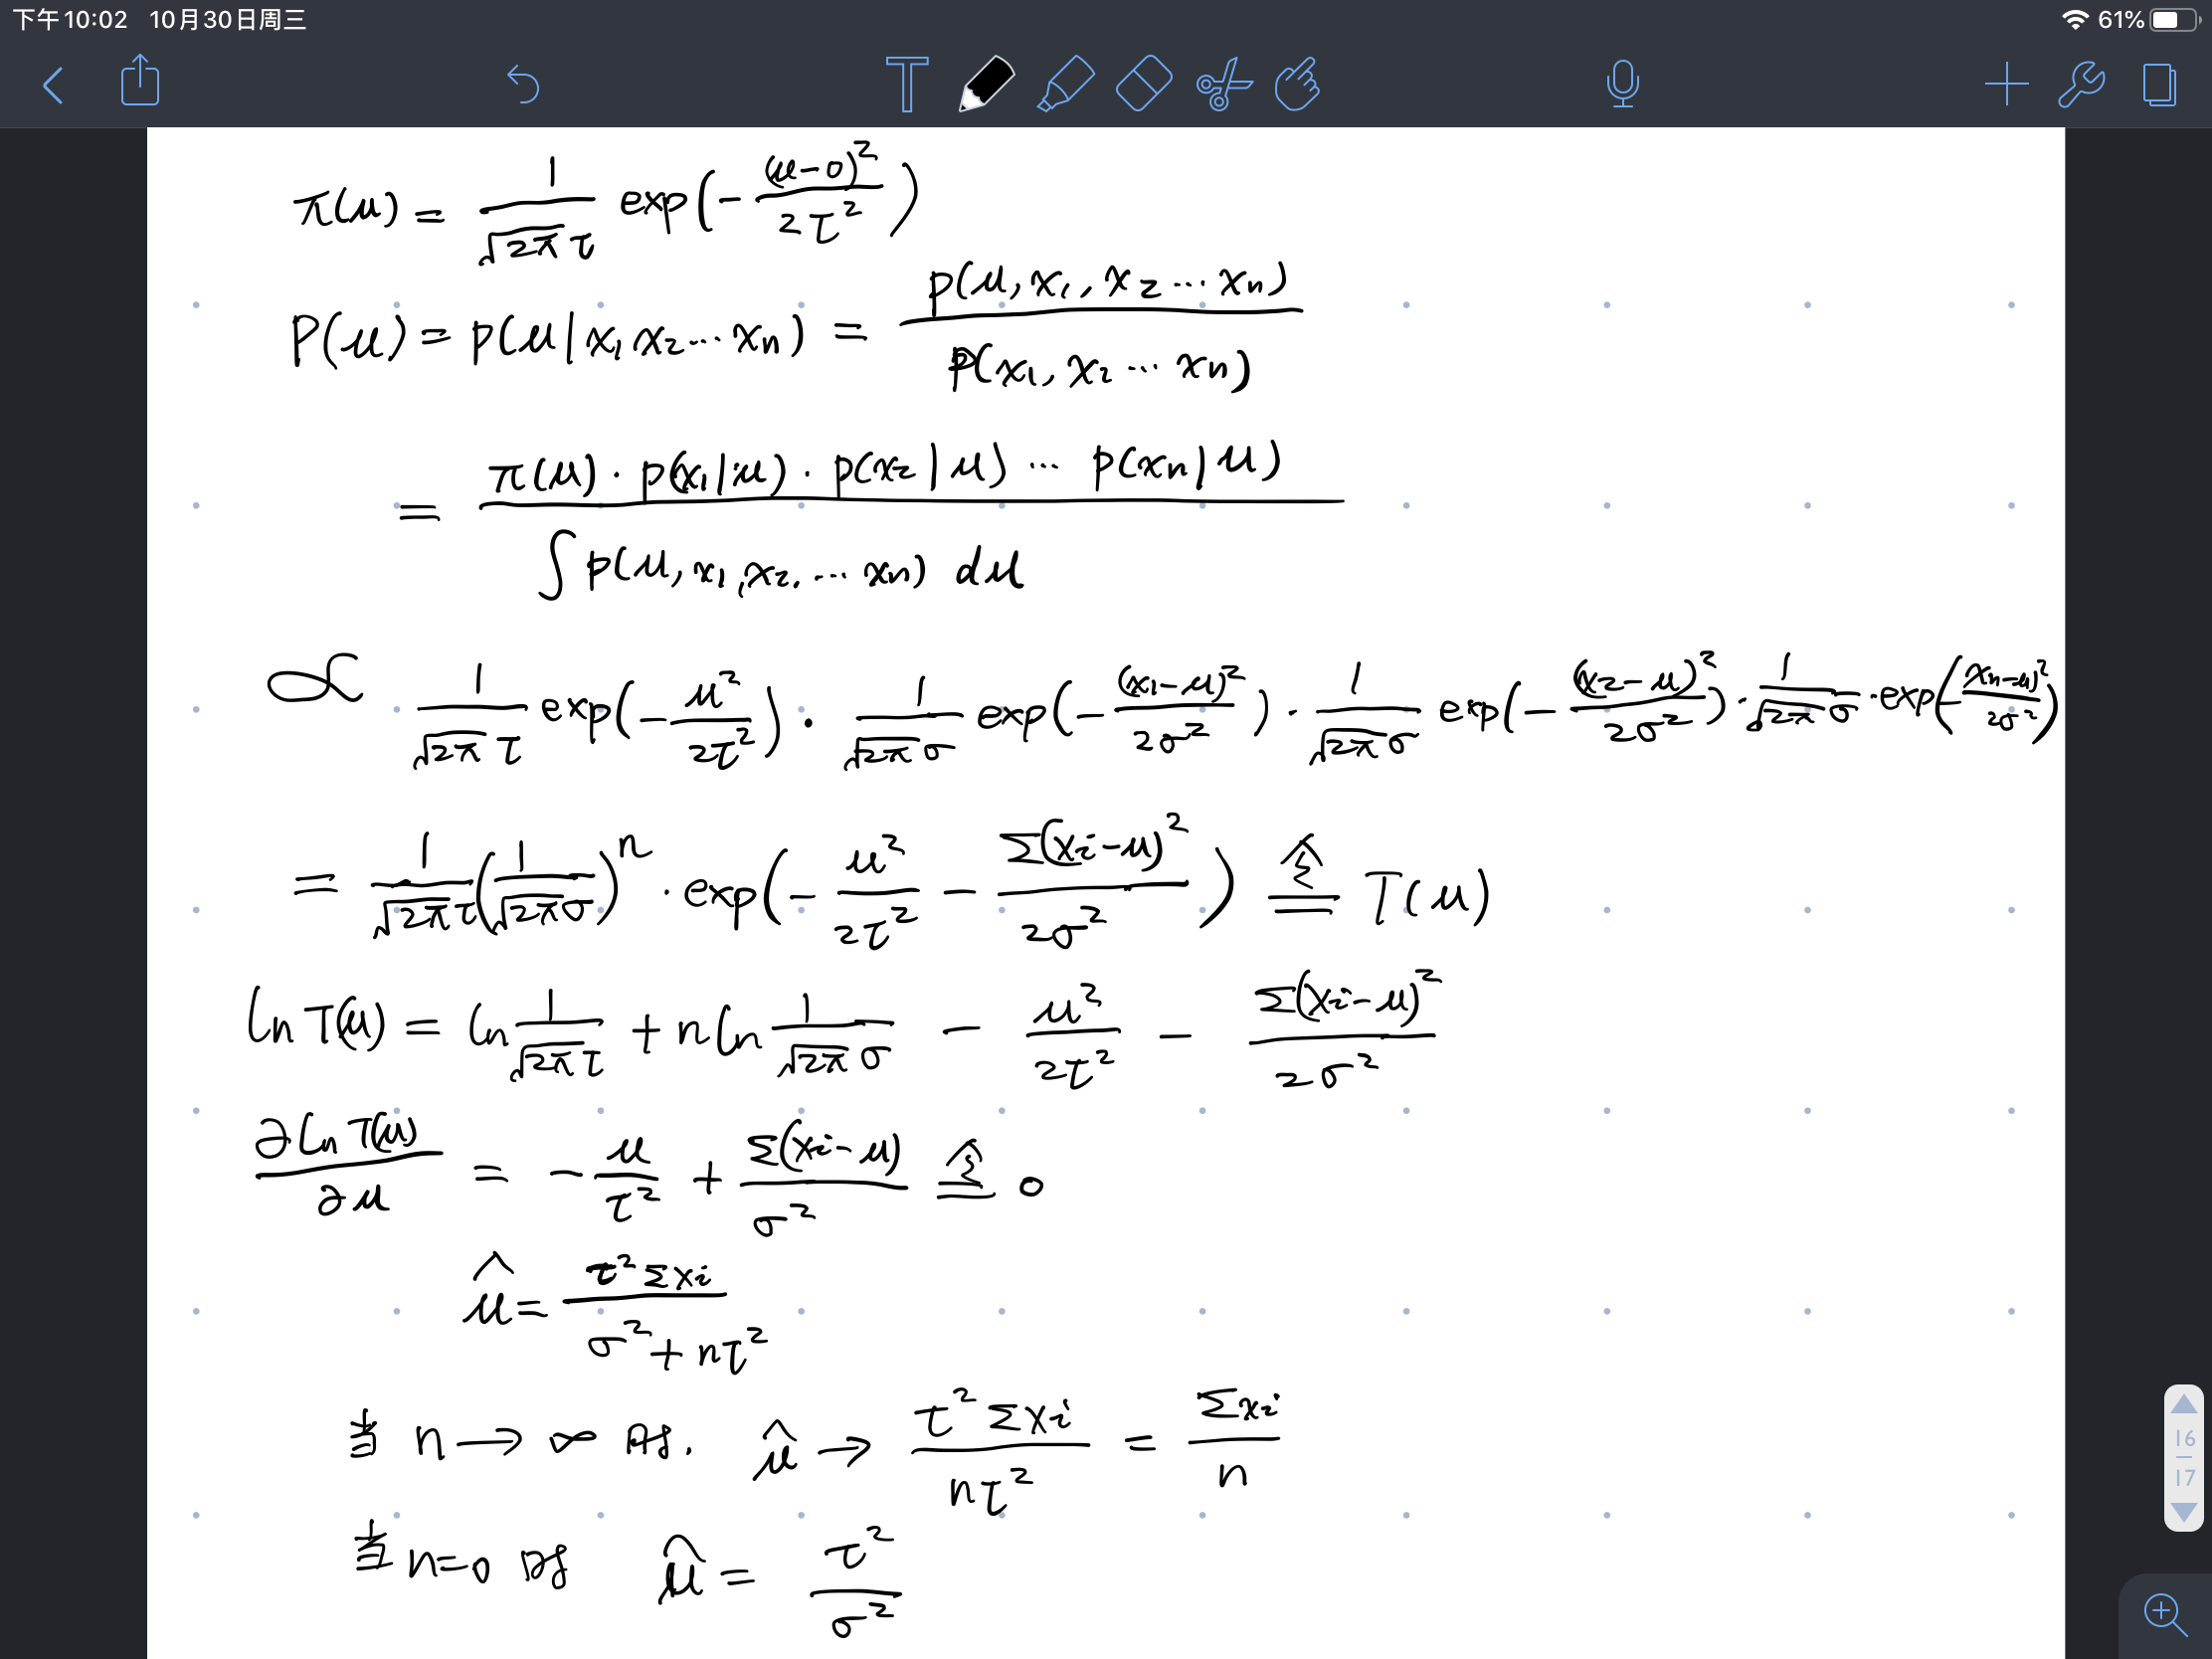 下午10:02 10月30日周三 61%
T
π(μ) = \frac{1}{\sqrt{2π}τ} exp(-\frac{(μ-0)^2}{2τ^2})
P(μ) = p(μ|x_1 x_2 … x_n) = \frac{p(μ, x_1, x_2 … x_n)}{p(x_1, x_2 … x_n)}
= \frac{π(μ) · p(x_1|μ) · p(x_2|μ) … p(x_n|μ)}{∫ p(μ, x_1, x_2, … x_n) dμ}
∝ \frac{1}{\sqrt{2π}τ} exp(-\frac{μ^2}{2τ^2}) · \frac{1}{\sqrt{2π}σ} exp(-\frac{(x_1-μ)^2}{2σ^2}) · \frac{1}{\sqrt{2π}σ} exp(-\frac{(x_2-μ)^2}{2σ^2}) · \frac{1}{\sqrt{2π}σ} · exp(\frac{(x_n-μ)^2}{2σ^2})
= \frac{1}{\sqrt{2π}τ} (\frac{1}{\sqrt{2π}σ})^n · exp(-\frac{μ^2}{2τ^2} - \frac{Σ(x_i-μ)^2}{2σ^2}) \overset{令}{=} T(μ)
ln T(μ) = ln \frac{1}{\sqrt{2π}τ} + n ln \frac{1}{\sqrt{2π}σ} - \frac{μ^2}{2τ^2} - \frac{Σ(x_i-μ)^2}{2σ^2}
\frac{∂ ln T(μ)}{∂μ} = -\frac{μ}{τ^2} + \frac{Σ(x_i-μ)}{σ^2} \overset{令}{=} 0
\hat{μ} = \frac{τ^2 Σx_i}{σ^2 + nτ^2}
当 n → ∞ 时. \hat{μ} → \frac{τ^2 Σx_i}{nτ^2} = \frac{Σx_i}{n}
当 n=0 时 \hat{μ} = \frac{τ^2}{σ^2}
16
17